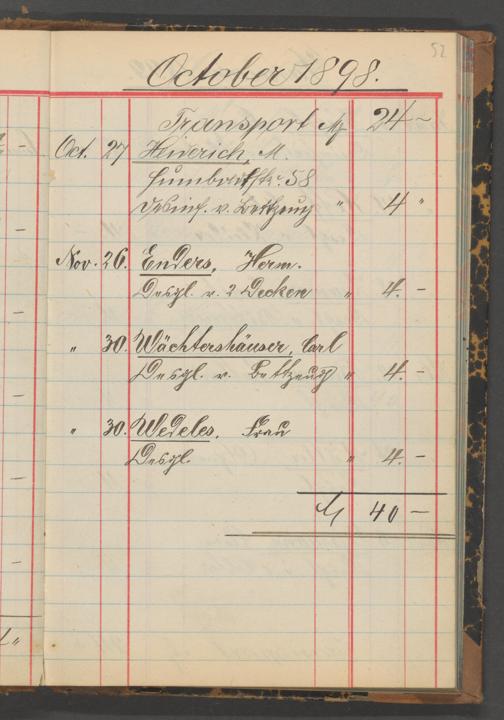 52
October 1898.
Transport M 24 —
Oct. 27 Heinrich, M.
Humboldtstr. 58
Desinf. v. Bettzeug " 4 "
Nov. 26. Enders, Herm.
Desgl. v. 2 Decken " 4. —
" 30. Wächtershäuser, Carl
Desgl. v. Bettzeug " 4. —
" 30. Wedeles, Frau
Desgl. " 4. —
M 40 —